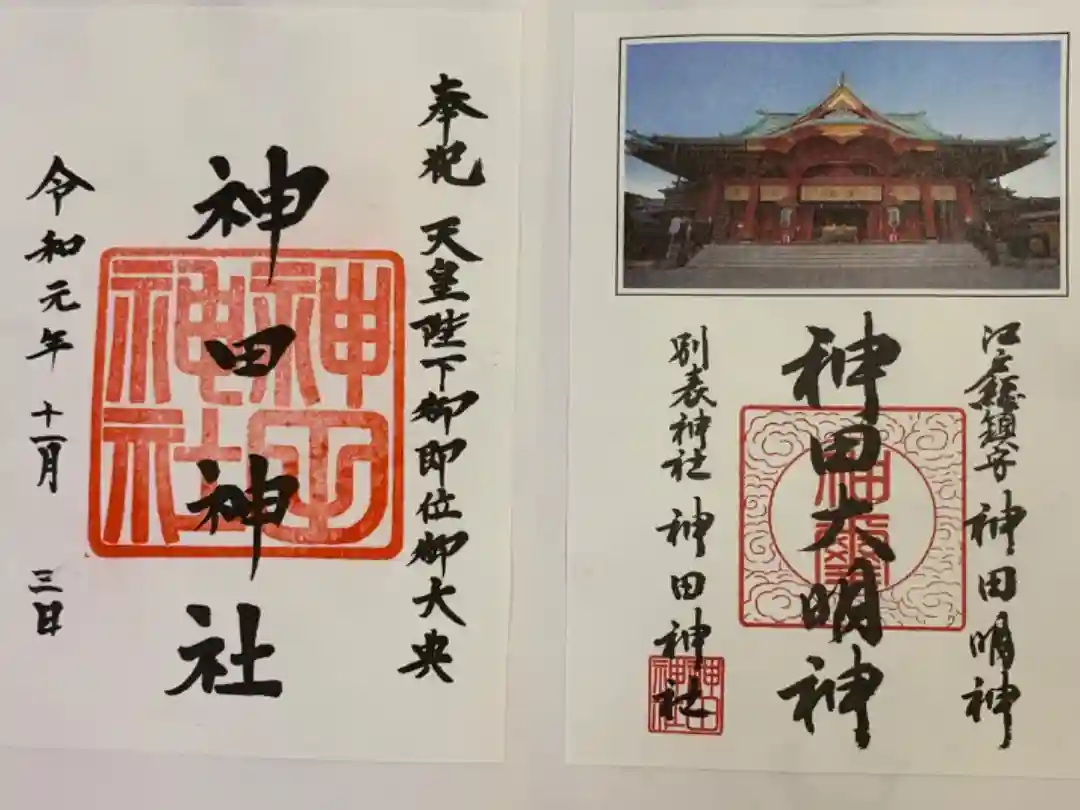 奉祝 天皇陛下御即位御大典
神田神社
令和元年 十一月 三日
神田神社
江戸総鎮守 神田明神
神田大明神
別表神社 神田神社
神田神社